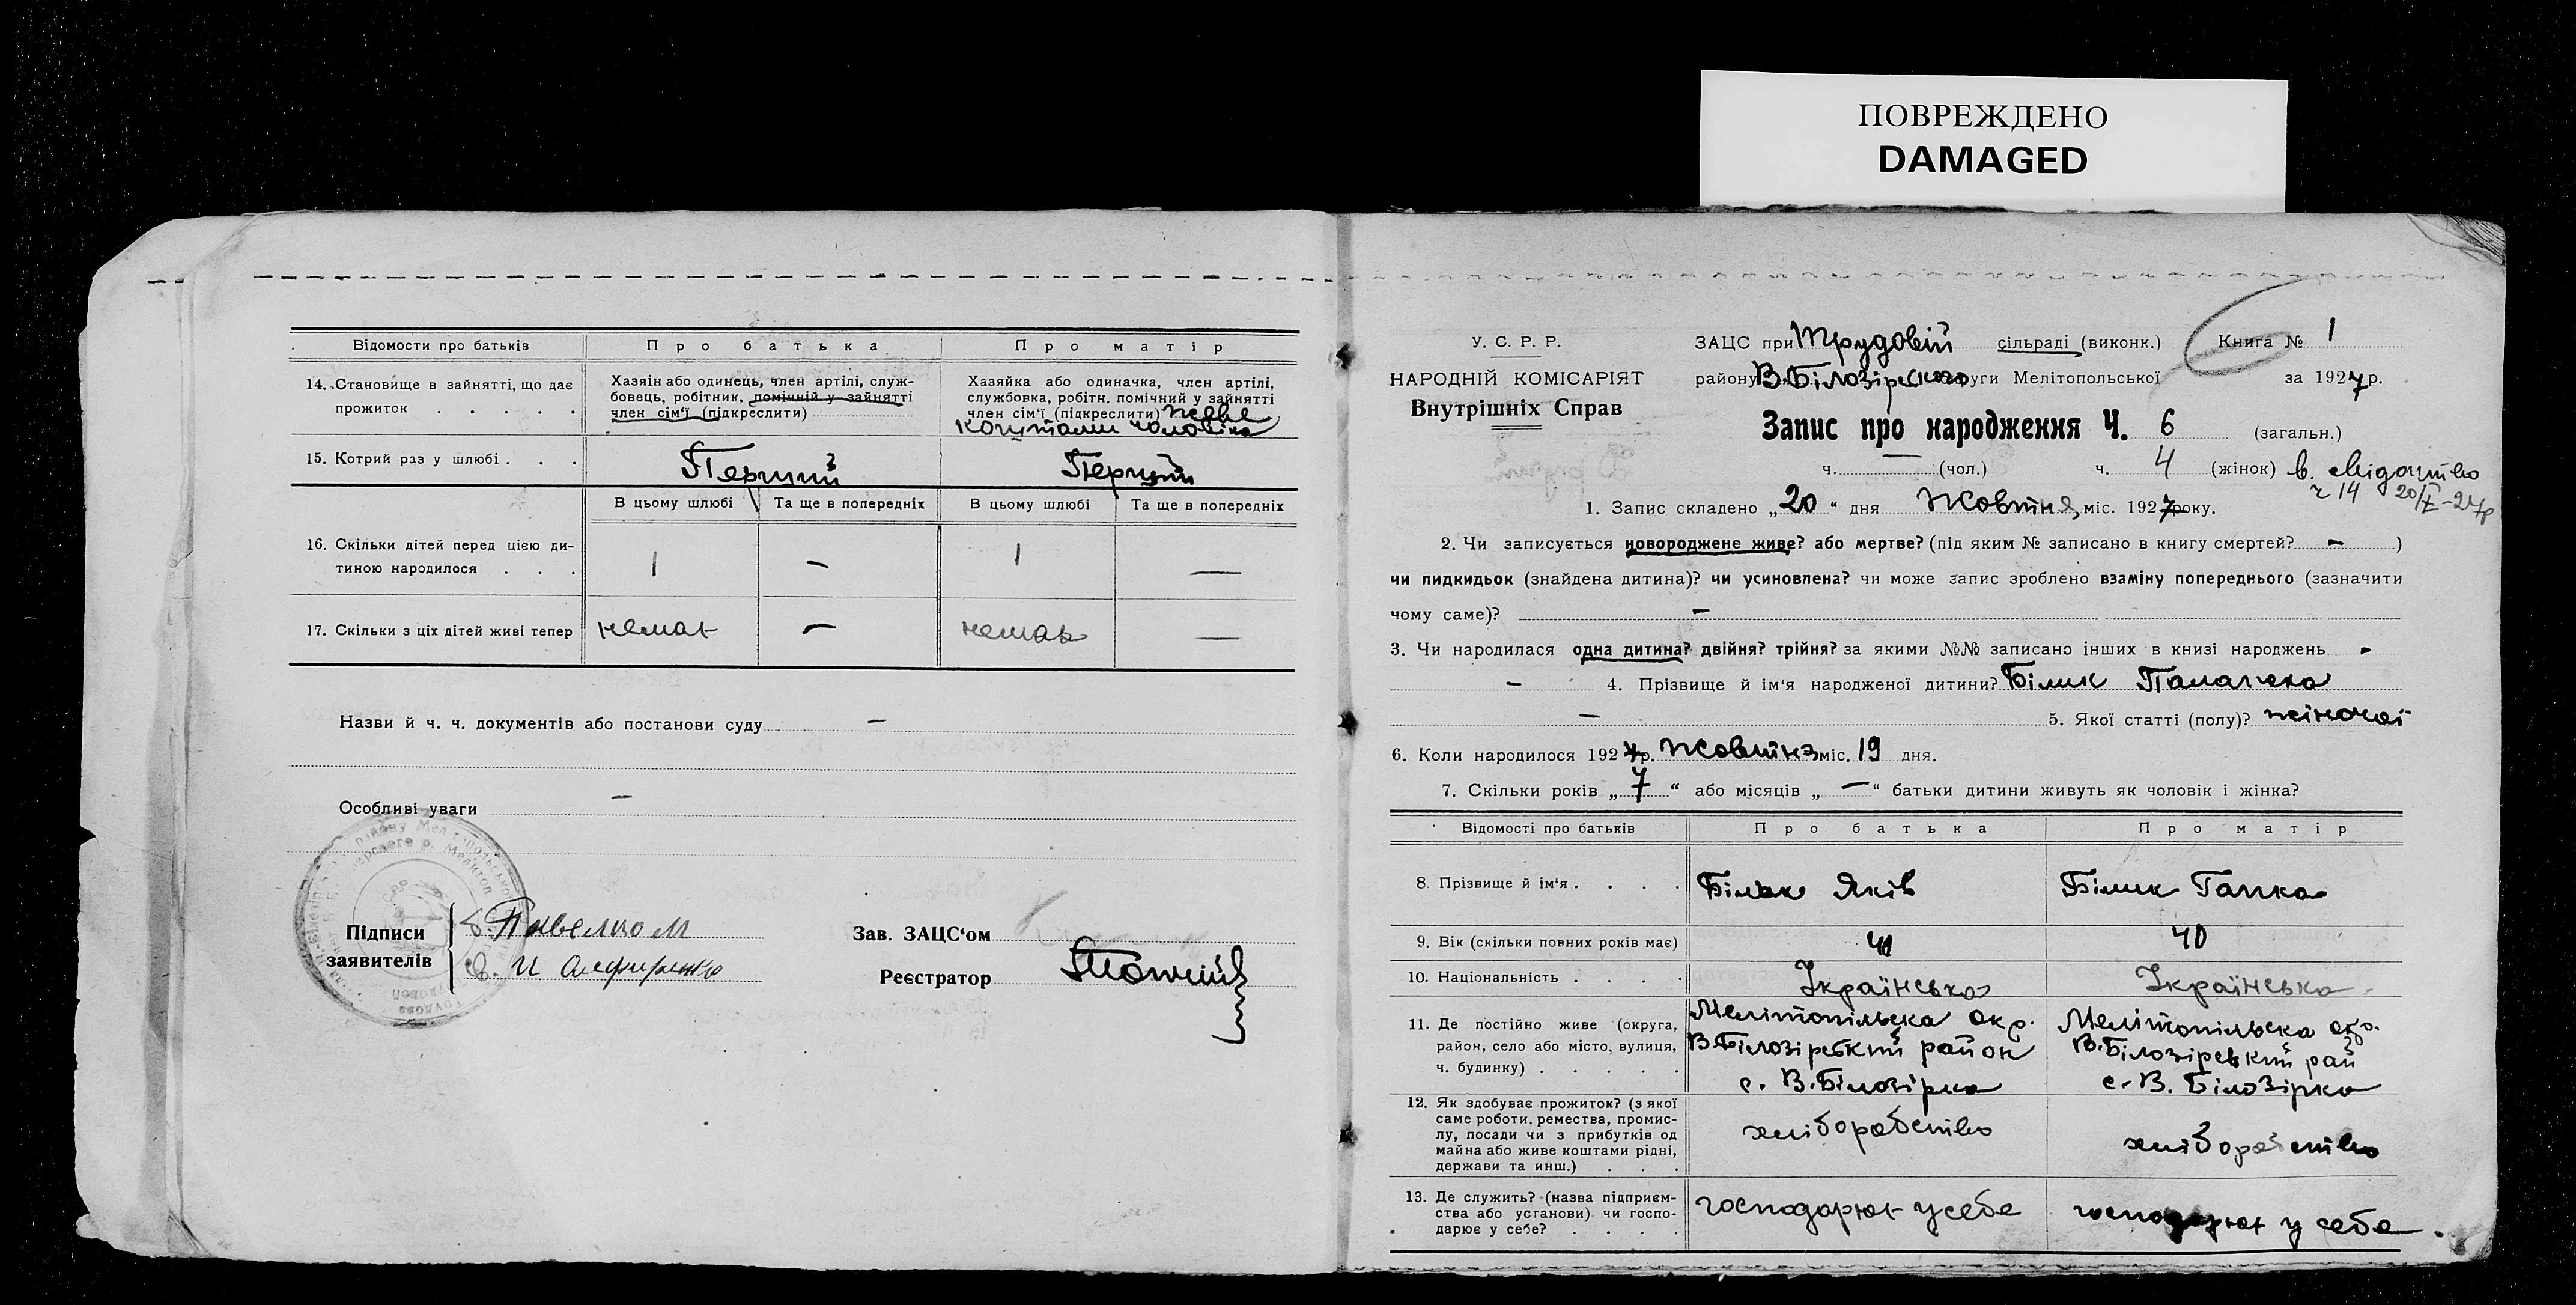 ПОВРЕЖДЕНО
DAMAGED
Відомости про батьків Про батька Про матір
14. Становище в зайнятті, що дає прожиток . . . . .
Хазяін або одинець, член артілі, служ-
бовець, робітник, помічній у зайнятті
член сім'ї (підкреслити)
Хазяйка або одиначка, член артілі,
службовка, робітн. помічний у зайнятті
член сім'ї (підкреслити) живе
коштами чоловіка
15. Котрий раз у шлюбі . . . Перший Перший
В цьому шлюбі Та ще в попередніх В цьому шлюбі Та ще в попередніх
16. Скільки дітей перед цією ди-
тиною народилося . . . 1 — 1 —
17. Скільки з ціх дітей живі тепер немає — немає —
Назви й ч. ч. документів або постанови суду —
Особливі уваги —
Підписи
заявителів
Зав. ЗАЦС'ом
Реєстратор
У. С. Р. Р.
НАРОДНІЙ КОМІСАРІЯТ
Внутрішніх Справ
ЗАЦС при Трудовій сільраді (виконк.) Книга № 1
району В.Білозірского округи Мелітопольської за 1927 р.
Запис про народження Ч. 6 (загальн.)
ч. — (чол.) ч. 4 (жінок) в. свідоцтво
ч 14
1. Запис складено „20" дня Жовтня міс. 1927 року.
2. Чи записується новороджене живе? або мертве? (під яким № записано в книгу смертей? - )
чи пидкидьок (знайдена дитина)? чи усиновлена? чи може запис зроблено взаміну попереднього (зазначити
чому саме)? —
3. Чи народилася одна дитина? двійня? трійня? за якими №№ записано інших в книзі народжень -
— 4. Прізвище й ім'я народженої дитини? Білик Палажка
— 5. Якої статті (полу)? жіночої
6. Коли народилося 1927 р. Жовтня міс. 19 дня.
7. Скільки років „7" або місяців „—" батьки дитини живуть як чоловік і жінка?
Відомості про батьків Про батька Про матір
8. Прізвище й ім'я . . . . Білик Яків Білик Гапка
9. Вік (скільки повних років має) 40
10. Національність . . . . Українська Українська
11. Де постійно живе (округа,
район, село або місто, вулиця,
ч. будинку) . . . . .
Мелітопільска окр.
В.Білозірський район
с. В.Білозірка
Мелітопільска окр.
В.Білозірський рай
с. В. Білозірка
12. Як здобуває прожиток? (з якої
саме роботи, ремества, промис-
лу, посади чи з прибутків од
майна або живе коштами рідні,
держави та инш.) . . .
хліборобство
хліборобство
13. Де служить? (назва підприєм-
ства або установи) чи госпо-
дарює у себе? . . . .
господарює у себе
господарює у себе